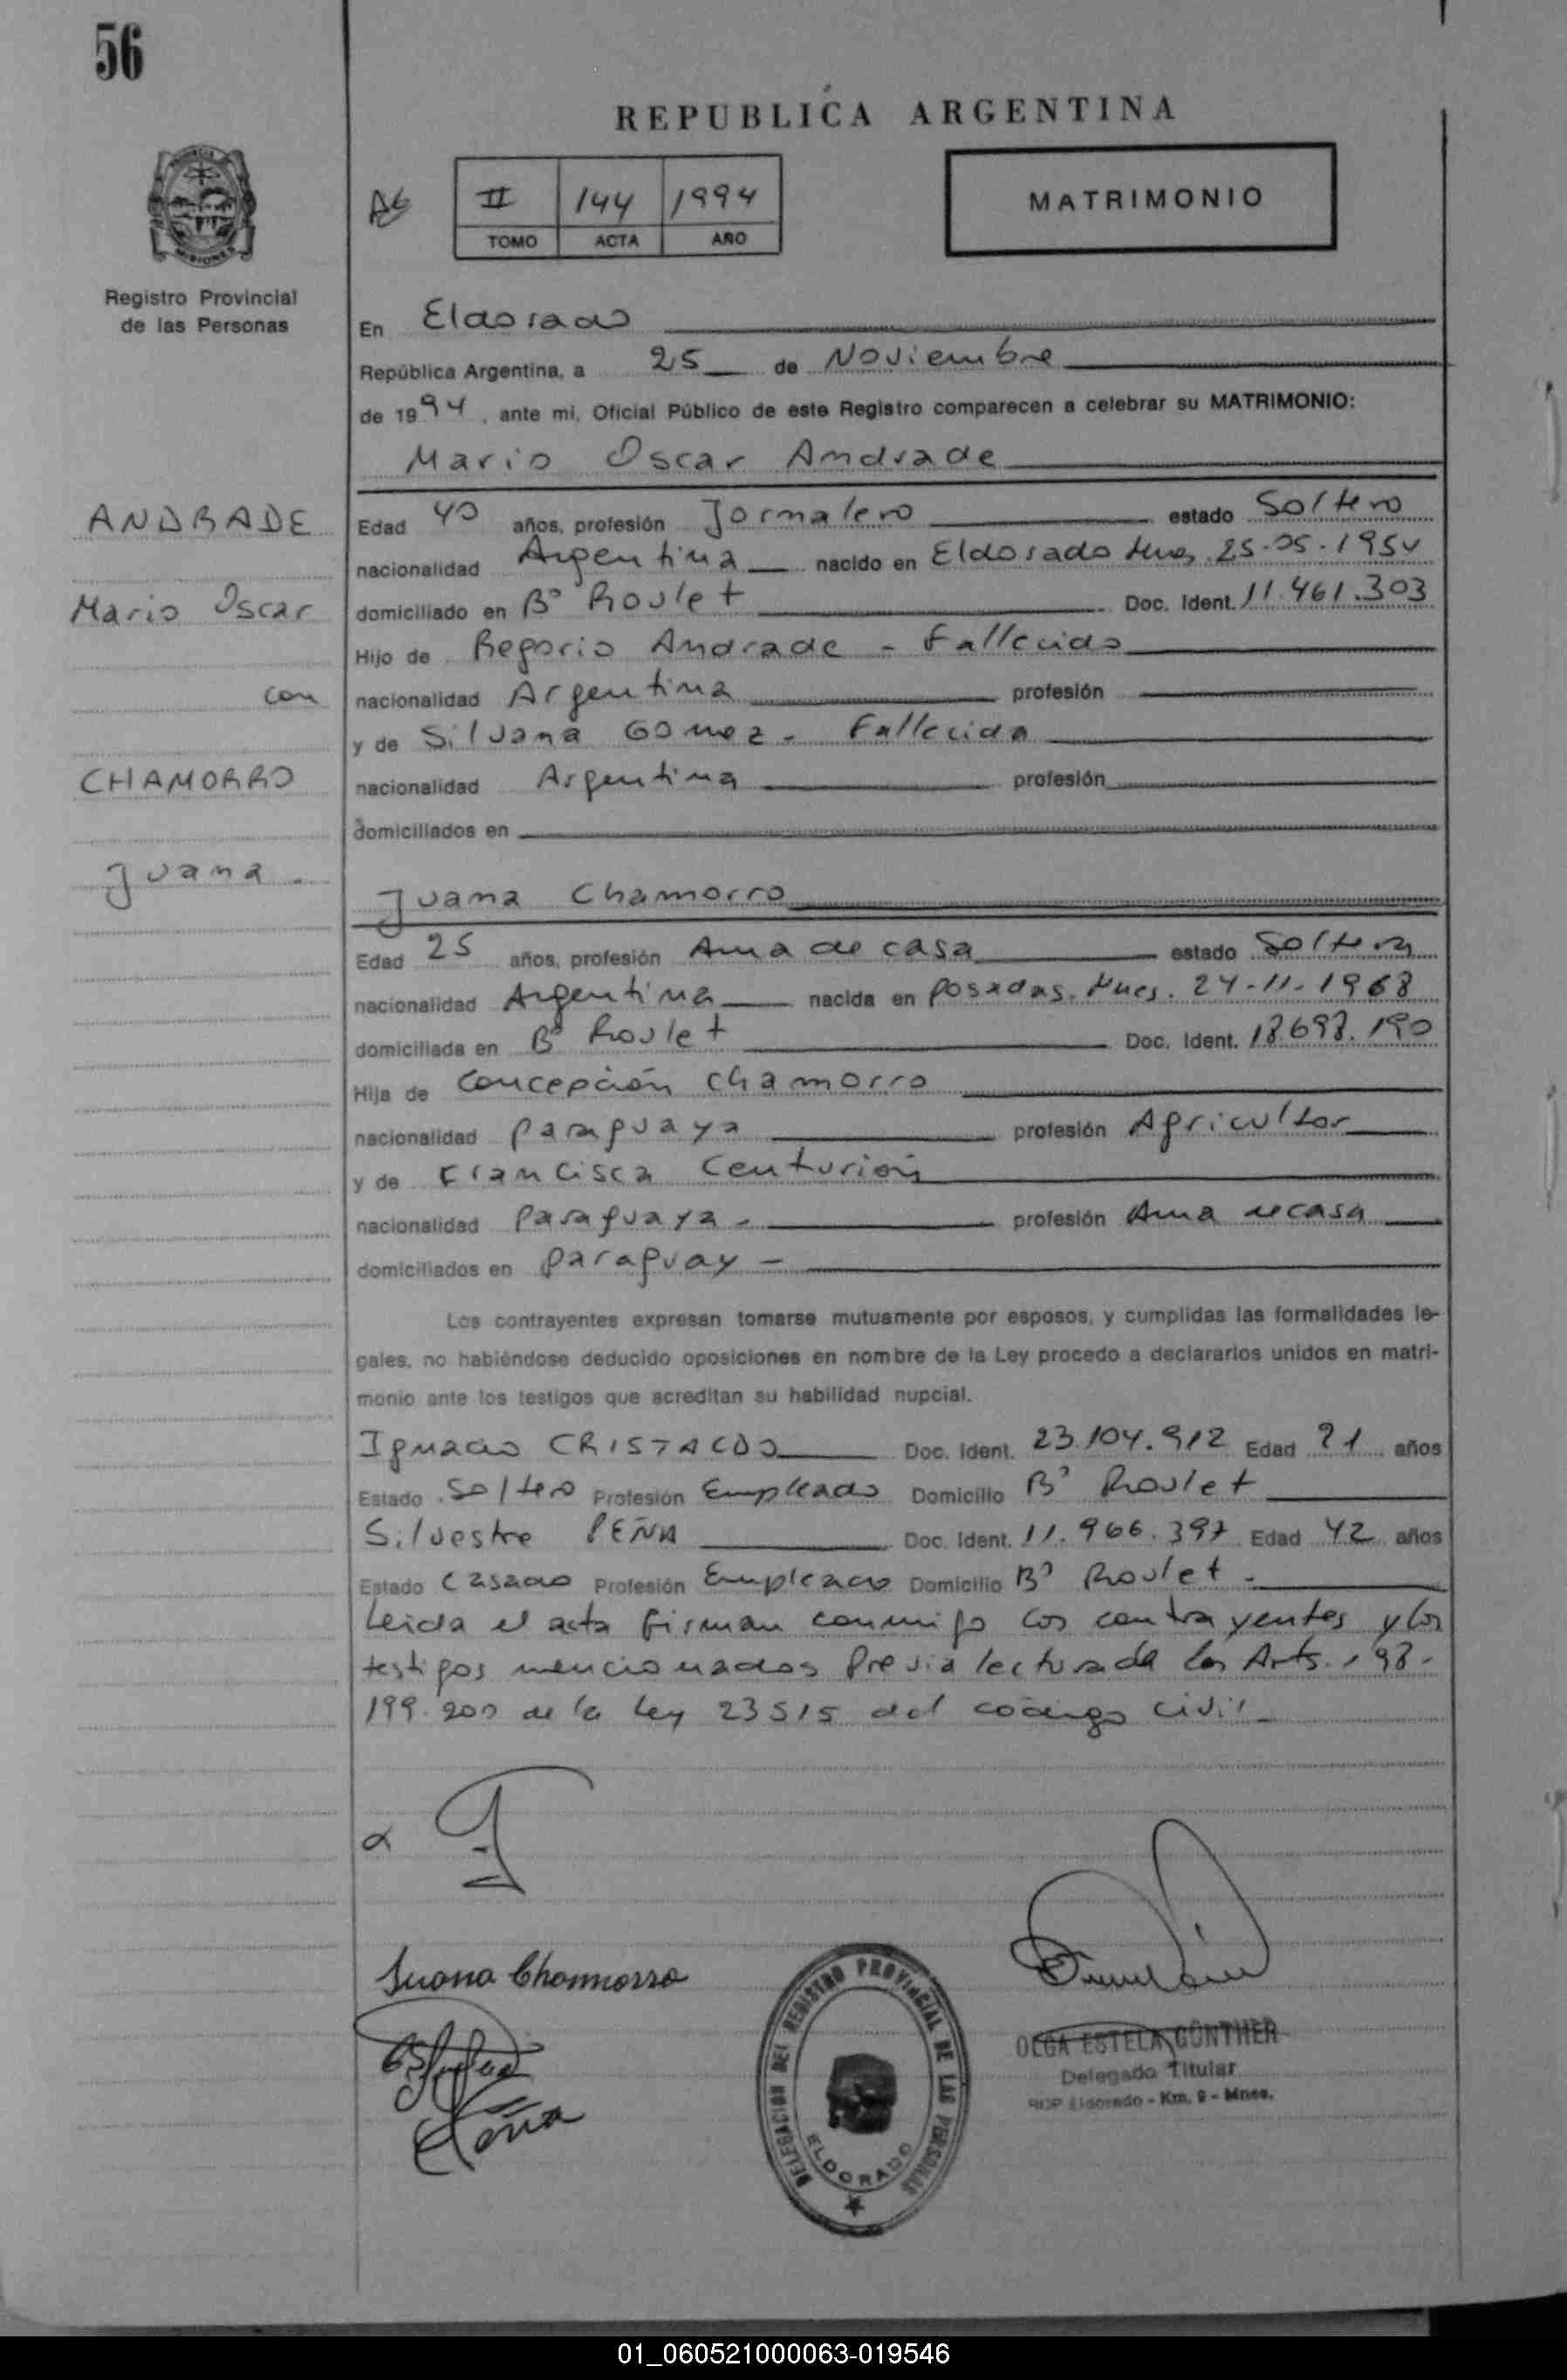 56
REPUBLICA ARGENTINA
II 144 1994
TOMO ACTA AÑO
MATRIMONIO
Registro Provincial
de las Personas
En Eldorado
República Argentina, a 25 de Noviembre
de 1994, ante mi, Oficial Público de este Registro comparecen a celebrar su MATRIMONIO:
Mario Oscar Andrade
ANDRADE
Edad 40 años, profesión Jornalero estado Soltero
nacionalidad Argentina nacido en Eldorado Mnes 25-05-1954
Mario Oscar
domiciliado en Bº Roulet Doc. Ident. 11.461.303
Hijo de Regorio Andrade - Fallecido
con
nacionalidad Argentina profesión
y de Silvana Gomez - Fallecida
CHAMORRO
nacionalidad Argentina profesión
domiciliados en
Juana.
Juana Chamorro
Edad 25 años, profesión Ama de casa estado Soltera
nacionalidad Argentina nacida en Posadas. Mnes. 24-11-1968
domiciliada en Bº Roulet Doc. Ident. 18.698.190
Hija de Concepción Chamorro
nacionalidad Paraguaya profesión Agricultor
y de Francisca Centurión
nacionalidad Paraguaya - profesión Ama de casa
domiciliados en Paraguay -
Los contrayentes expresan tomarse mutuamente por esposos, y cumplidas las formalidades le-
gales, no habiéndose deducido oposiciones en nombre de la Ley procedo a declararlos unidos en matri-
monio ante los testigos que acreditan su habilidad nupcial.
Ignacio CRISTALDO Doc. Ident. 23.104.912 Edad 21 años
Estado Soltero Profesión Empleado Domicilio Bº Roulet
Silvestre PEÑA Doc. Ident. 11.966.397 Edad 42 años
Estado Casado Profesión Empleado Domicilio Bº Roulet -
Leida el acta firman conmigo los contrayentes y los
testigos mencionados Previa lectura de los Arts. 198-
199-200 de la Ley 23515 del codigo civil
Juana Chamorro
Peña
DELEGACION DEL REGISTRO PROVINCIAL DE LAS PERSONAS
ELDORADO
OLGA ESTELA GÜNTHER
Delegado Titular
RCP Eldorado - Km. 9 - Mnes.
01_060521000063-019546